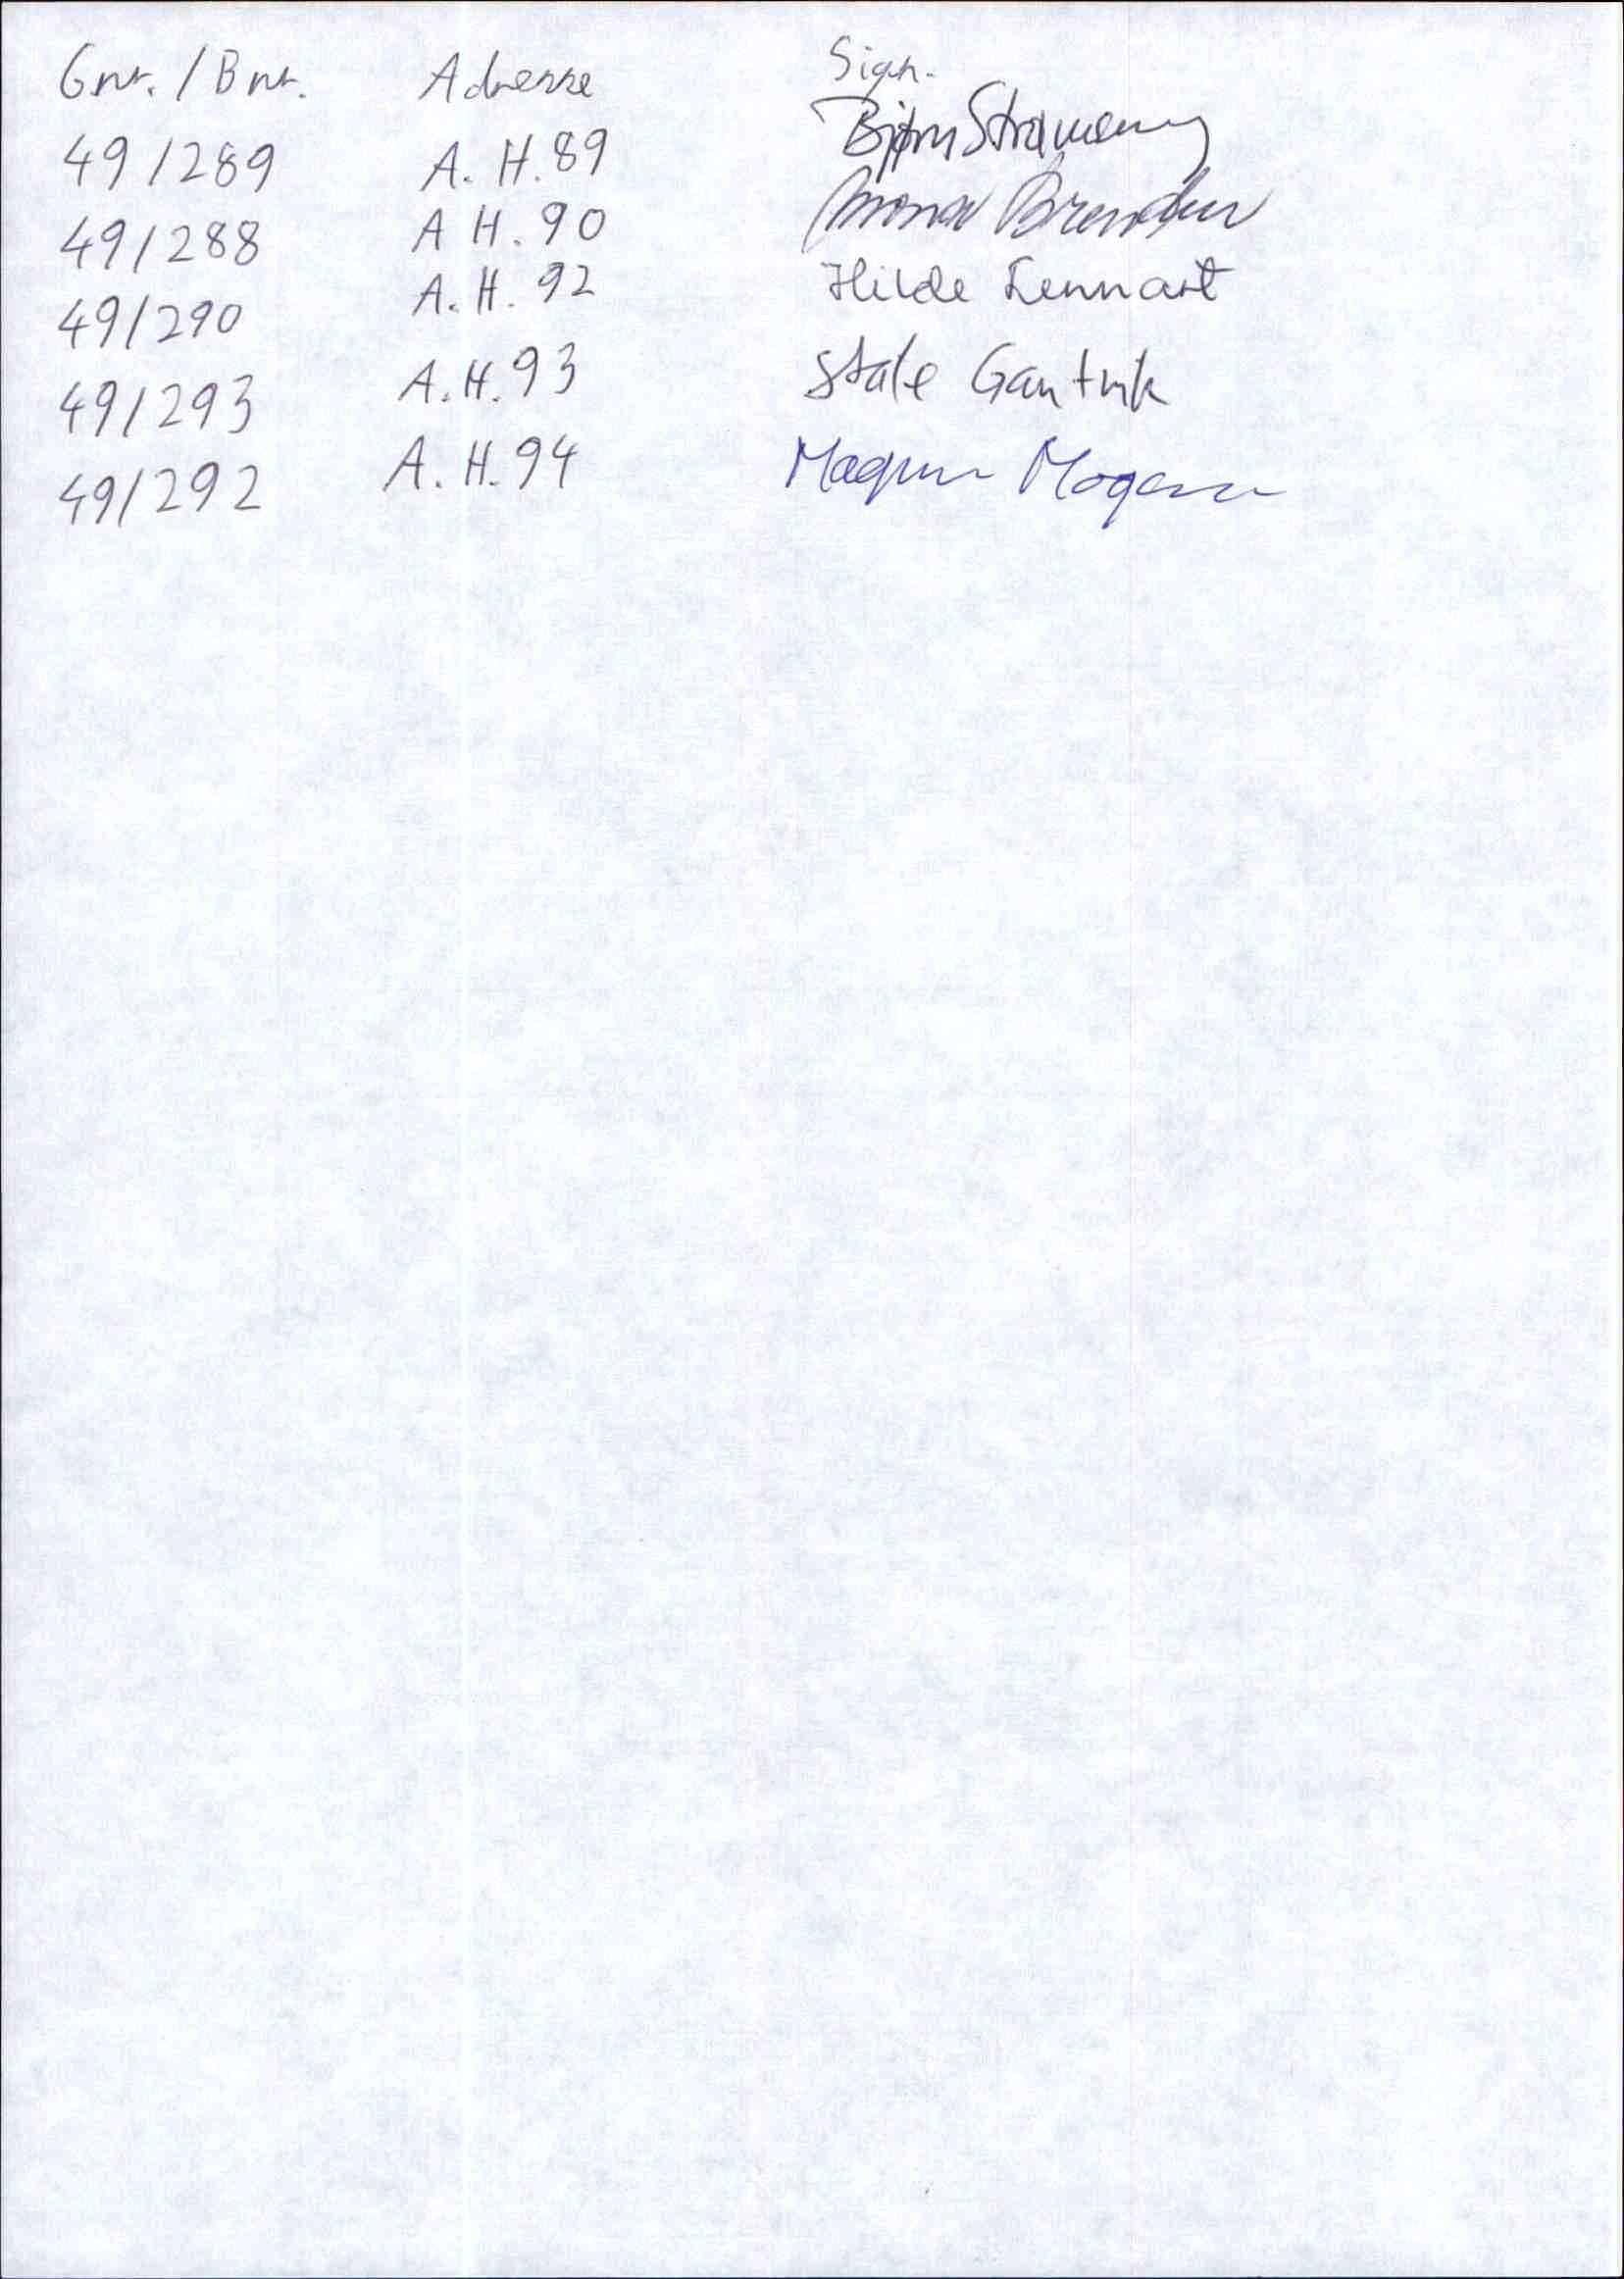 Gnr. / Bnr. Adresse Sign.
49/289 A. H. 89 Bjørn
49/288 A H. 90 Mona
49/290 A. H. 92 Hilde Lennart
49/293 A. H. 93 Ståle
49/292 A. H. 94 Magnus